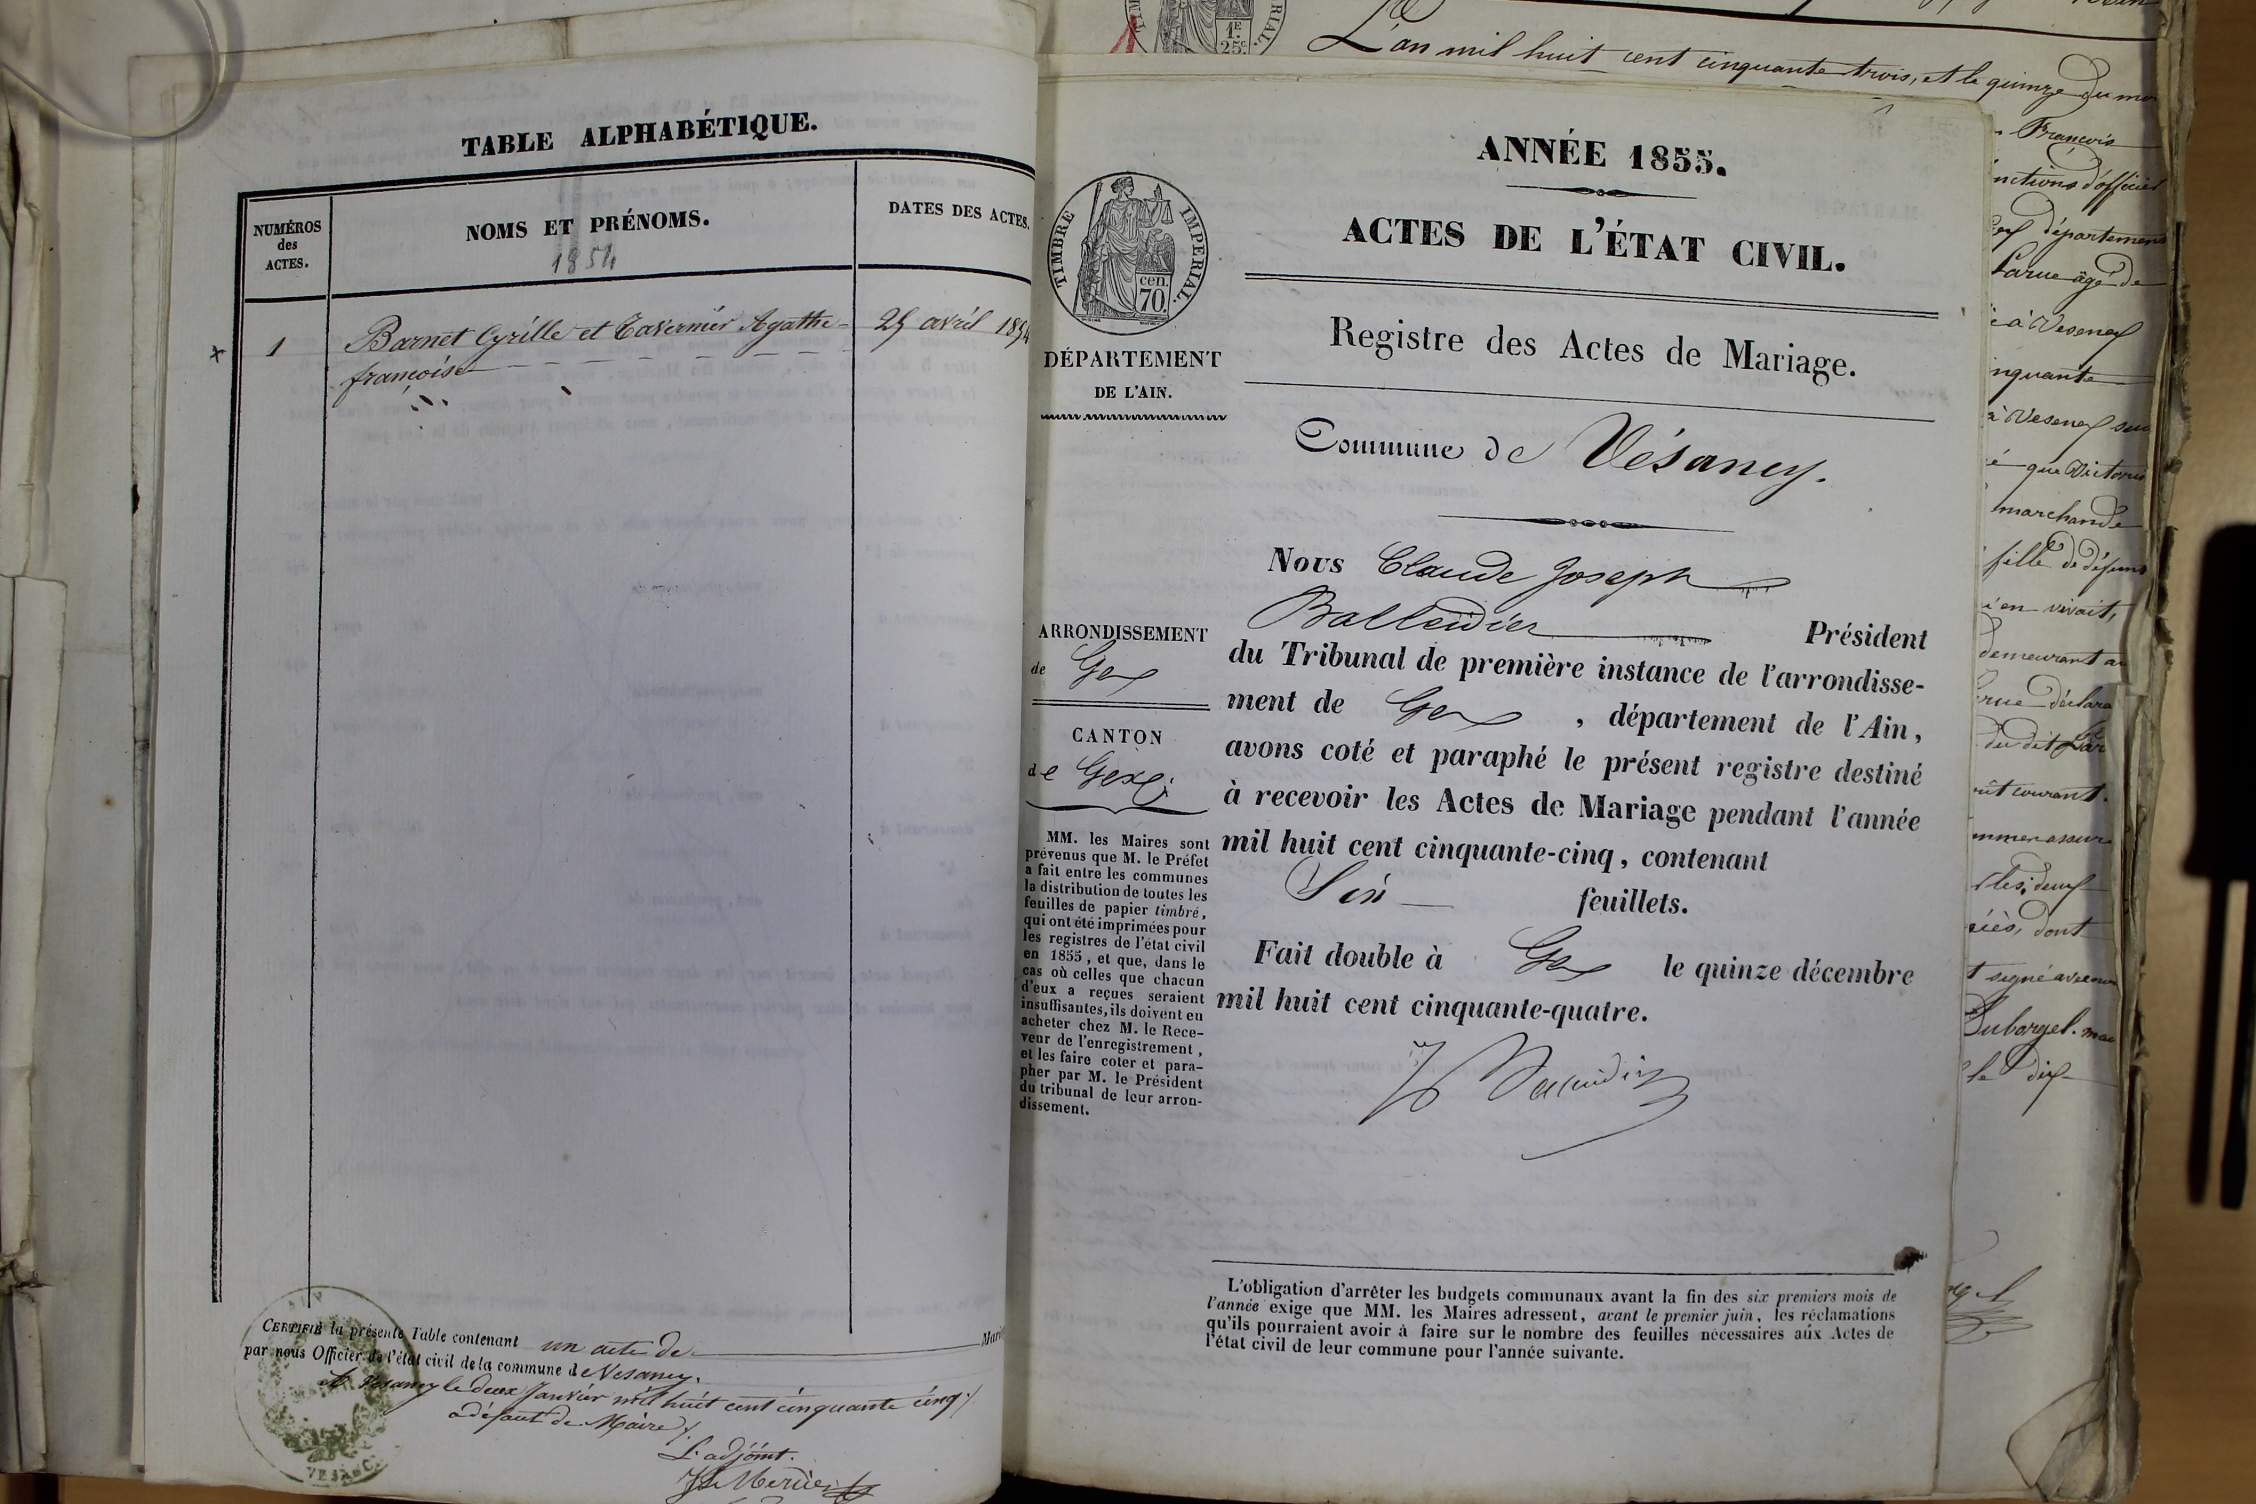 TABLE ALPHABÉTIQUE.
NUMÉROS
des
ACTES.
NOMS ET PRÉNOMS.
1854
DATES DES ACTES.
1
Barnet Cyrille et Tavernier Agathe
françoise
25 avril 1854
CERTIFIÉ la présente Table contenant un acte de Mari
par nous Officier de l'état civil de la commune de Vesancy.
A Vesancy le deux Janvier mil huit cent cinquante cinq
a défaut de Maire
L'adjoint.
TIMBRE IMPERIAL.
cen.
70.
DÉPARTEMENT
DE L'AIN.
ARRONDISSEMENT
de Gex
CANTON
de Gex
MM. les Maires sont
prévenus que M. le Préfet
a fait entre les communes
la distribution de toutes les
feuilles de papier timbré,
qui ont été imprimées pour
les registres de l'état civil
en 1855, et que, dans le
cas où celles que chacun
d'eux a reçues seraient
insuffisantes, ils doivent en
acheter chez M. le Rece-
veur de l'enregistrement,
et les faire coter et para-
pher par M. le Président
du tribunal de leur arron-
dissement.
ANNÉE 1855.
ACTES DE L'ÉTAT CIVIL.
Registre des Actes de Mariage.
Commune de Vésancy.
Nous Claude Joseph
Balleidier Président
du Tribunal de première instance de l'arrondisse-
ment de Gex, département de l'Ain,
avons coté et paraphé le présent registre destiné
à recevoir les Actes de Mariage pendant l'année
mil huit cent cinquante-cinq, contenant
Six feuillets.
Fait double à Gex le quinze décembre
mil huit cent cinquante-quatre.
L'obligation d'arrêter les budgets communaux avant la fin des six premiers mois de
l'année exige que MM. les Maires adressent, avant le premier juin, les réclamations
qu'ils pourraient avoir à faire sur le nombre des feuilles nécessaires aux Actes de
l'état civil de leur commune pour l'année suivante.
1E
25c
L'an mil huit cent cinquante trois, et le quinze du mo
François
nctions d'officier
département
Larue âgé de
a Vesency
nquante
à Vesency
que Victorine
marchande
fille de défunt
en vivait,
demeurant a
rue déclara
du dit
courant.
les deux
dont
signé avec
le dix